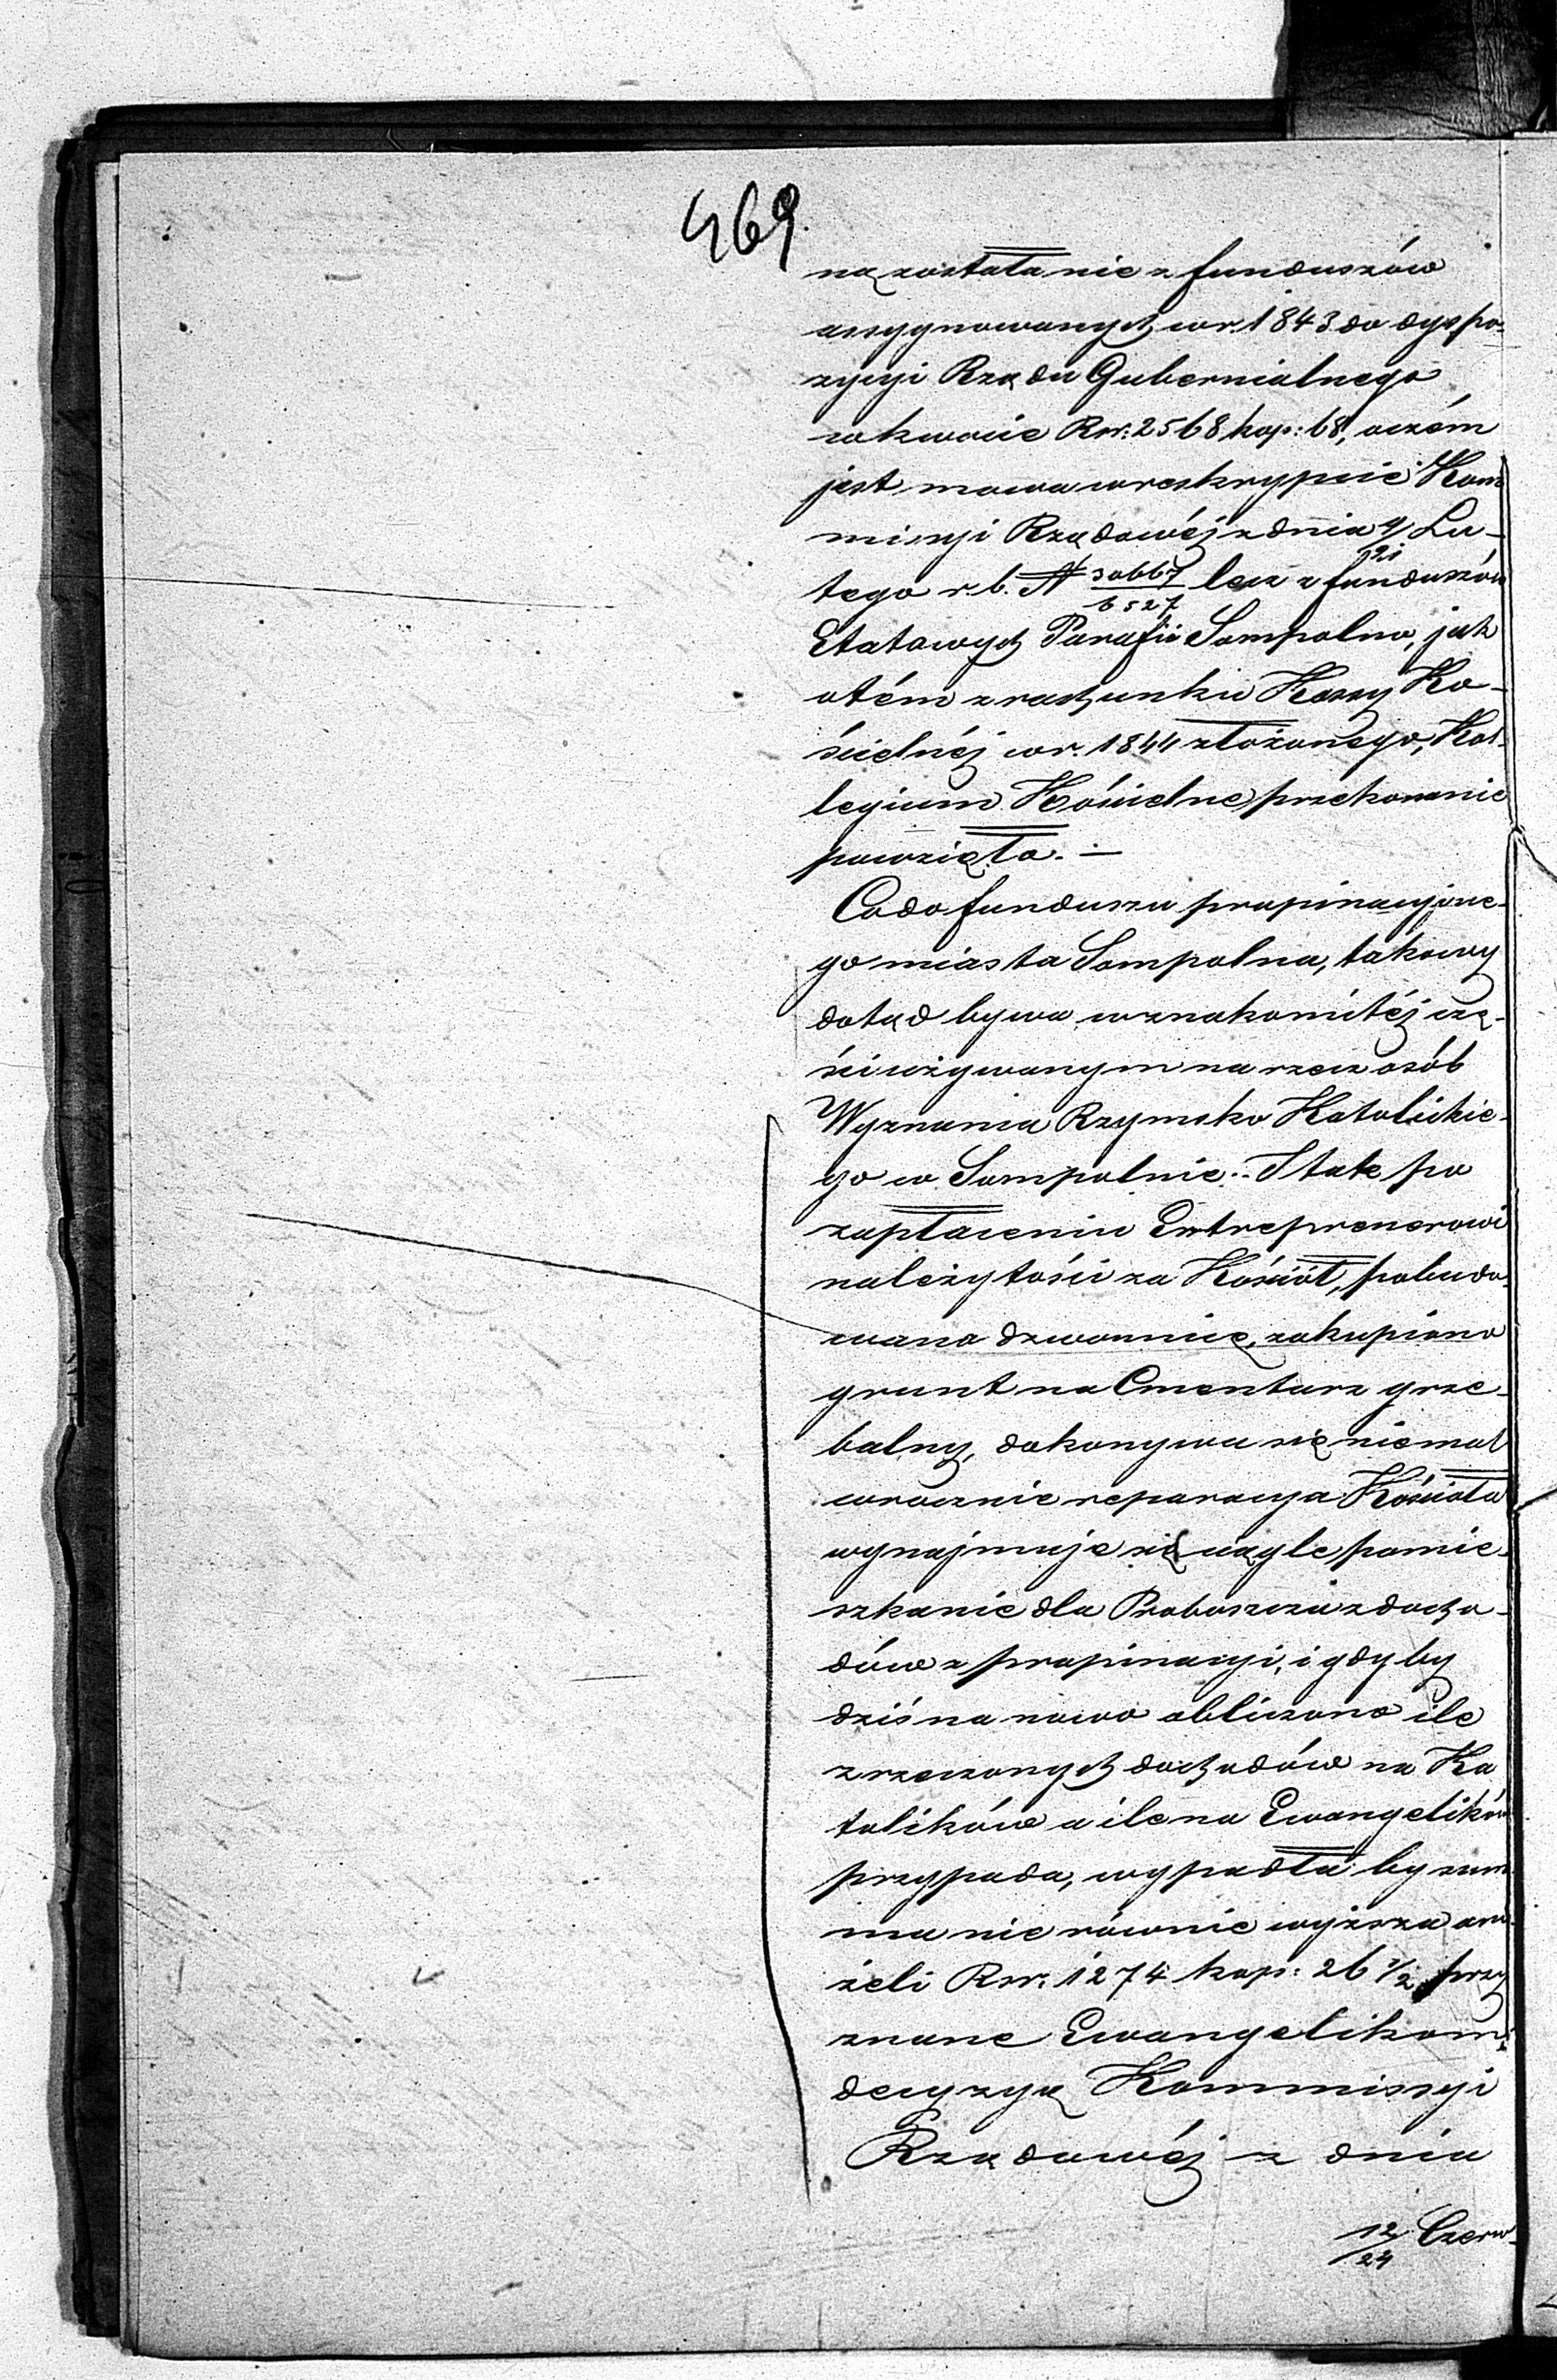 469.
ną została nie z funduszów
assygnowanych w r. 1843 do dyspo-
zycyi Rządu Gubernialnego
w kwocie Rsr: 2568 kop: 68, o czém
jest mowa w reskrypcie Kom-
missyi Rządowéj z dnia 9/21 Lu-
tego r. b. N 30667/6527 lecz z funduszów
Etatowych Parafii Sompolno, jak
o tém z rachunku Kassy Ko-
ścielnéj w r. 1844 złożonego, Kol-
legium Kościelne przekonanie
powzięło. —
Co do funduszu propinacyjne-
go miasta Sompolna, takowy
dotąd bywa w znakomitéj czę-
ści używanym na rzecz osób
Wyznania Rzymsko Katolickie-
go w Sompolnie. I tak po
zapłaceniu Entreprenerowi
należytości za Kościół, pobudo-
wano dzwonnicę, zakupiono
grunt na Cmentarz grze-
balny, dokonywa się niemal
corocznie reparacya Kościoła
wynajmuje się ciągle pomie-
szkanie dla Proboszcza z docho-
dów z propinacyi, i gdyby
dziś na nowo obliczono ile
z rzeczonych dochodów na Ka
tolików a ile na Ewangelików
przypada, wypadła by sum-
ma nie równie wyższa ani-
żeli Rsr. 1274 kop: 26 1/2 przy
znane Ewangelikom
decyzyą Kommissyi
Rządowéj z dnia
12/24 Czerw-